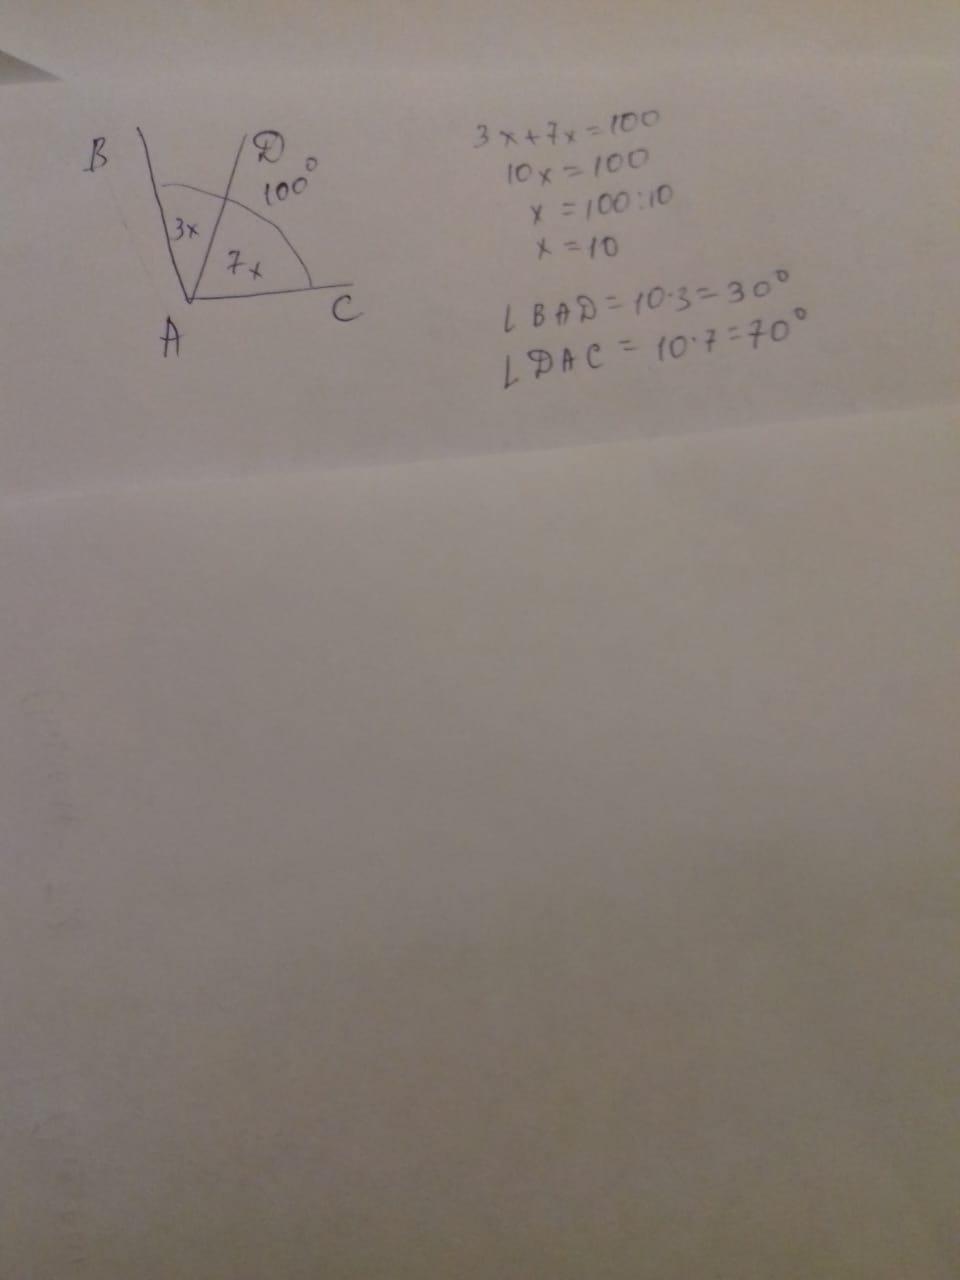 B
D
100°
3x
7x
A
C
3x+7x=100
10x=100
x=100:10
x=10
∟BAD=10·3=30°
∟DAC=10·7=70°